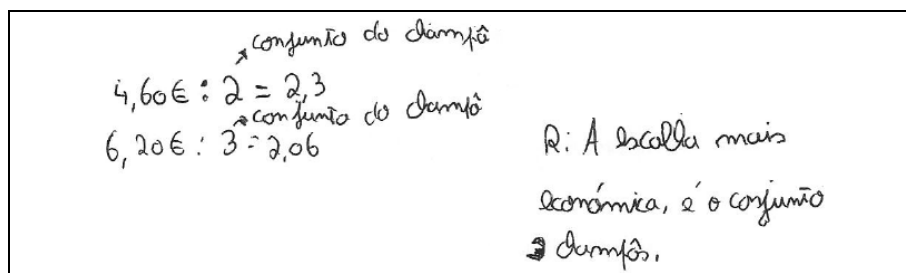 conjunto do champô
4,60€ : 2 = 2,3
conjunto do champô
6,20€ : 3 = 2,06
R: A escolha mais
económica, é o conjunto
3 champôs.